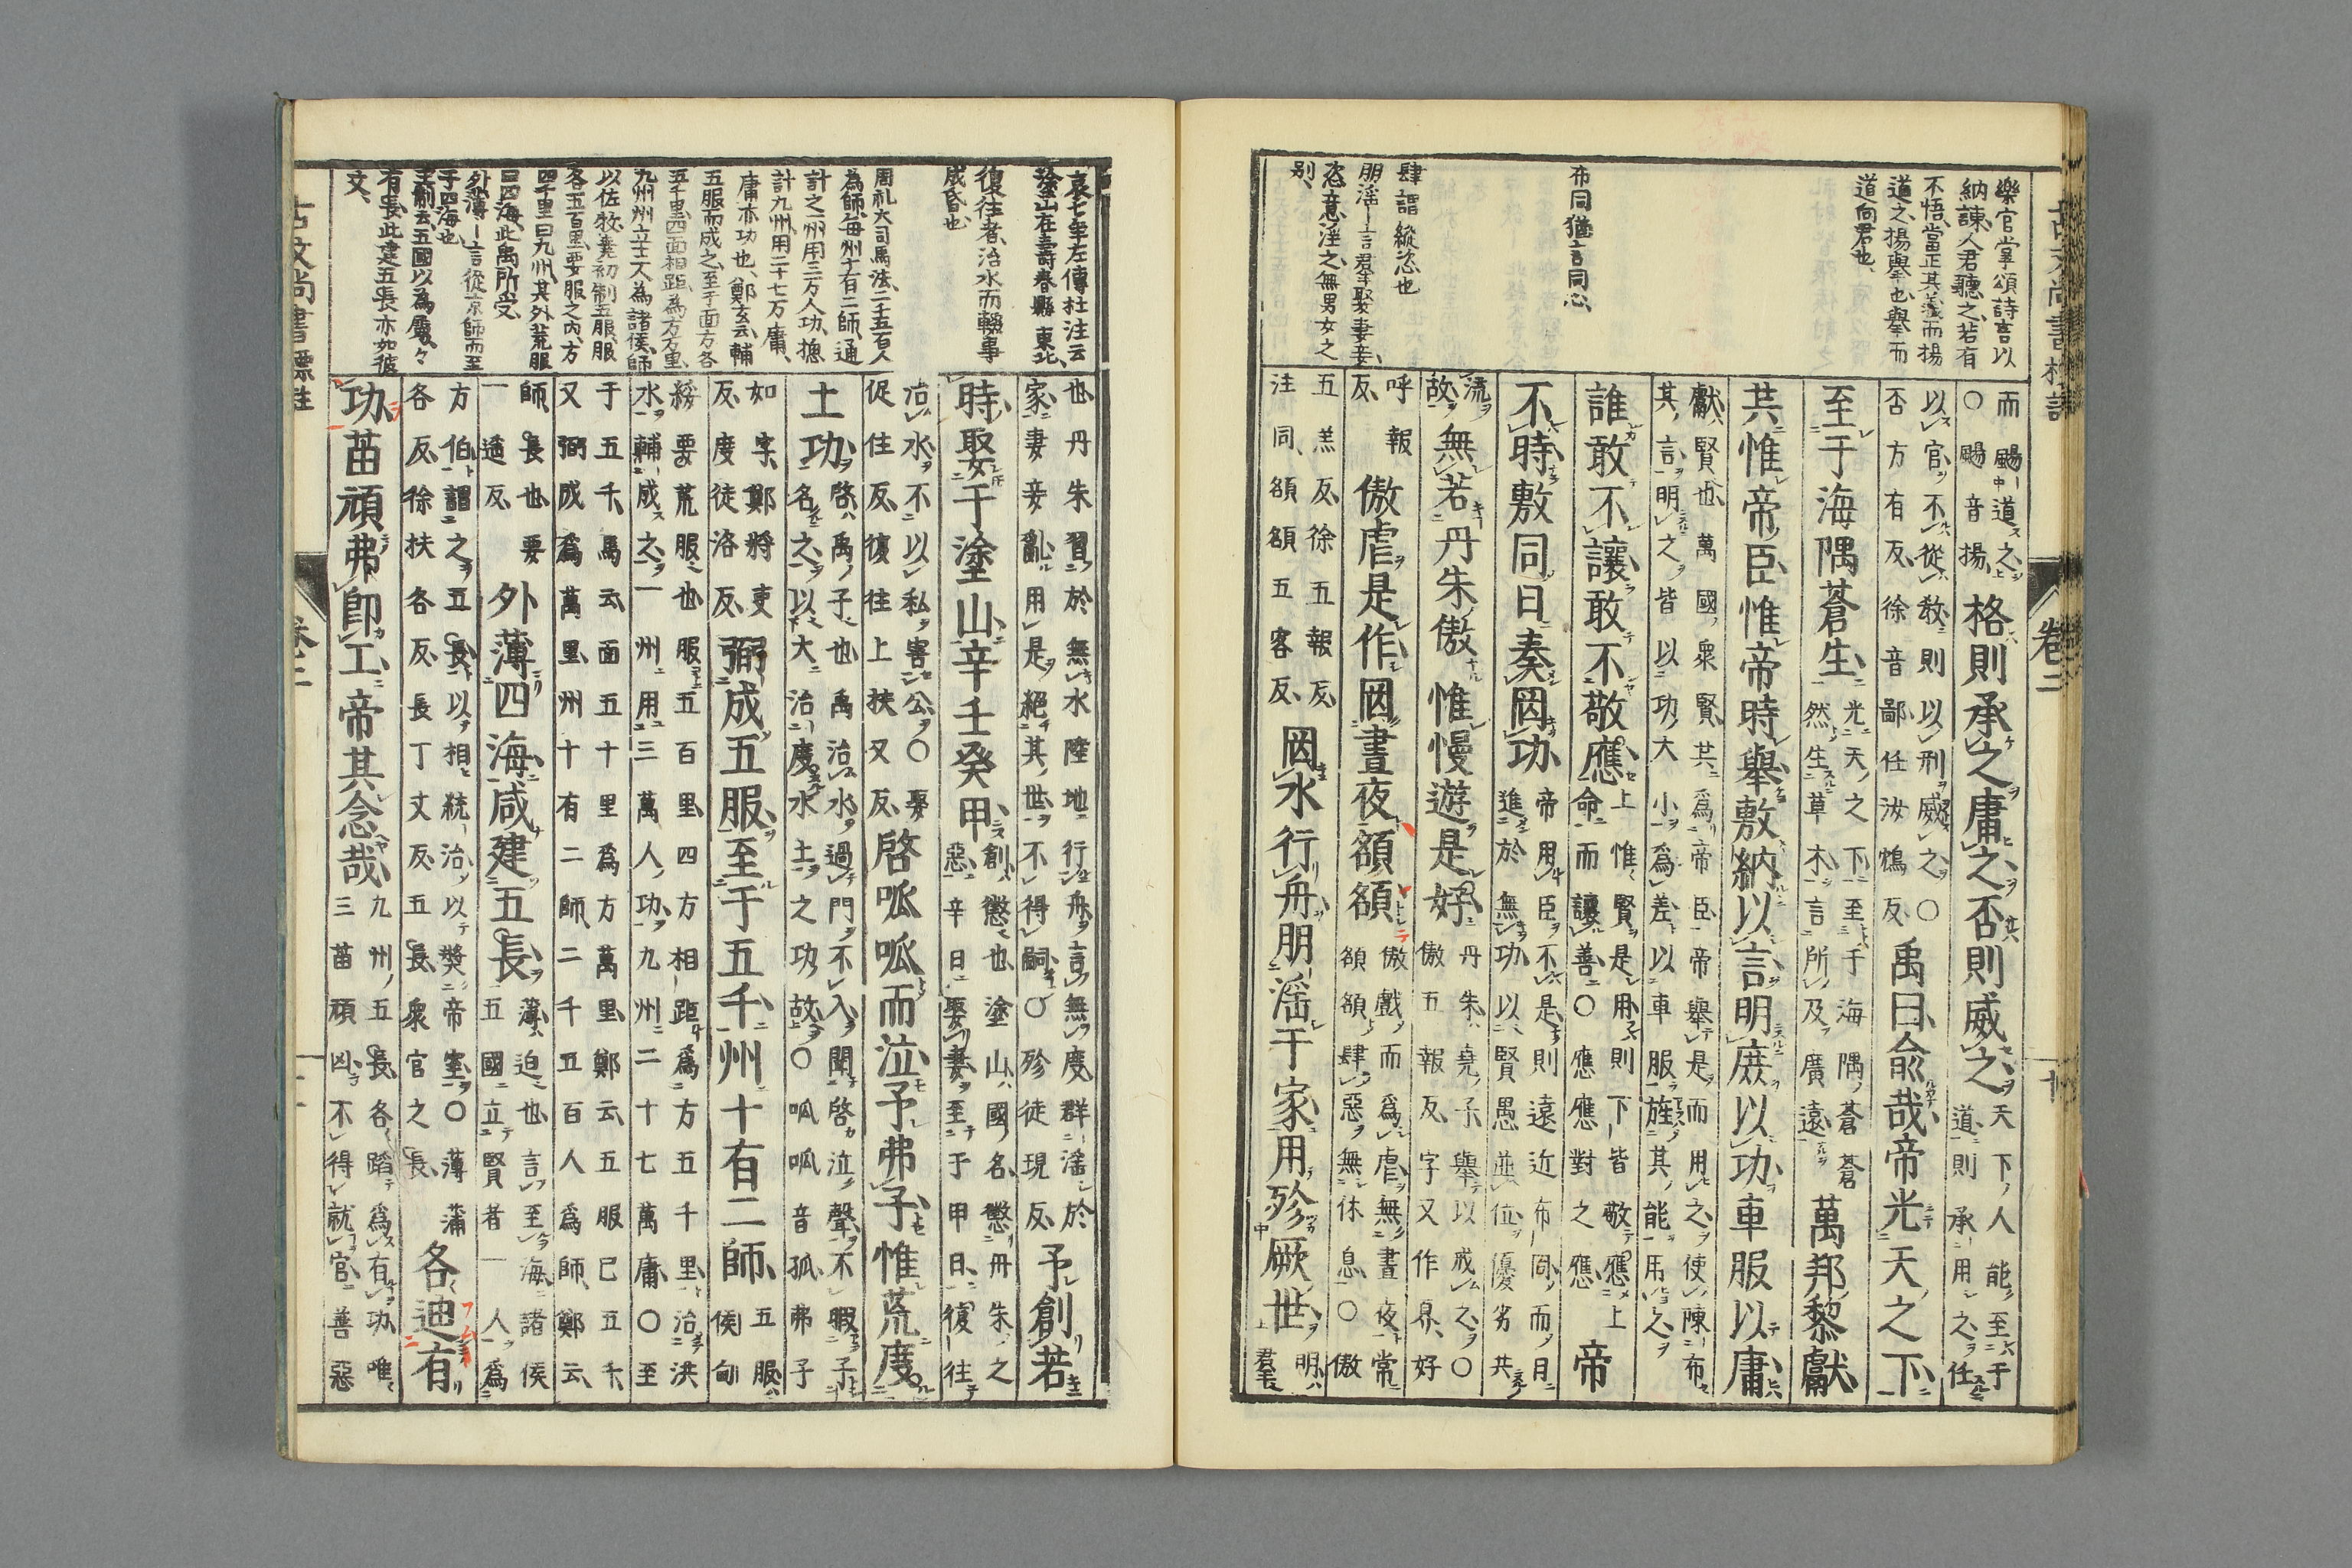 古文尚書標註 卷二 十
樂官掌頌詩言以
納諫人君聽之若有
不悟當正其義而揚
道之揚舉也舉而
道向君也
布同猶言同心
肆謂縱恣也
朋淫—言羣娶妻妾
恣意淫之無男女之
別
而颺道之
○颺音揚
格則承之庸之否則威之
天下人能至于
道則承用之任
以官不從教則以刑威之○
否方有反徐音鄙任汝鴆反
禹曰俞哉帝光天之下
至于海隅蒼生
光天之下至于海隅蒼蒼
然生草木言所及廣遠
萬邦黎獻
共惟帝臣惟帝時舉敷納以言明庶以功車服以庸
獻賢也萬國衆賢共爲帝臣帝舉是而用之使陳布
其言明之皆以功大小爲差以車服旌其能用之
誰敢不讓敢不敬應
上惟賢是用則下皆敬應上
命而讓善○應應對之應
帝
不時敷同日奏罔功
帝用臣不是則遠近布同而日
進於無功以賢愚並位優劣共
流
故
無若丹朱傲惟慢遊是好
丹朱堯子舉以戒之○
傲五報反字又作奡好
呼報
反
傲虐是作罔晝夜頟頟
傲戲而爲虐無晝夜常
頟頟肆惡無休息○傲
五羔反徐五報反
注同頟頟五客反
罔水行舟朋淫于家用殄厥世
明
羣
哀七年左傳杜注云
塗山在壽春縣東北
復往者治水而輟事
成昏也
周礼大司馬法二千五百人
為師每州十有二師通
計之一州用三万人功揔
計九州用二十七万庸
庸亦功也鄭玄云輔
五服而成之至于面方各
五千里四面相距為方万里
九州州立十二人為諸侯師
以佐牧堯初制五服服
各五百里要服之内方
四千里曰九州其外荒服
曰四海此禹所受
外薄—言從京師而至
于四海也
王制云五國以為屬々
有長此建五長亦如彼
文
也丹朱習於無水陸地行舟言無度群淫於
家妻妾亂用是絕其世不得嗣○殄徒現反
予創若
時娶于塗山辛壬癸甲
創懲也塗山國名懲丹朱之
惡辛日娶妻至于甲日復往
治水不以私害公○娶
促住反復往上扶又反
啓呱呱而泣予弗子惟荒度
土功
啓禹子也禹治水過門不入聞啓泣聲不暇子
名之以大治度水土之功故○呱呱音孤弗子
如字鄭將吏
反度徒洛反
弼成五服至于五千州十有二師
五服
侯甸
綏要荒服也服五百里四方相距爲方五千里治洪
水輔成之一州用三萬人功九州二十七萬庸○至
于五千馬云面五千里爲方萬里鄭云五服已五千
又弼成爲萬里州十有二師二千五百人爲師鄭云
師長也要
一遥反
外薄四海咸建五長
薄迫也言至海諸侯
五國立賢者一人爲
方伯謂之五長以相統治以獎帝室○薄蒲
各反徐扶各反長丁丈反五長衆官之長
各迪有
功苗頑弗即工帝其念哉
九州五長各蹈爲有功唯
三苗頑凶不得就官善惡
古文尚書標註 卷二